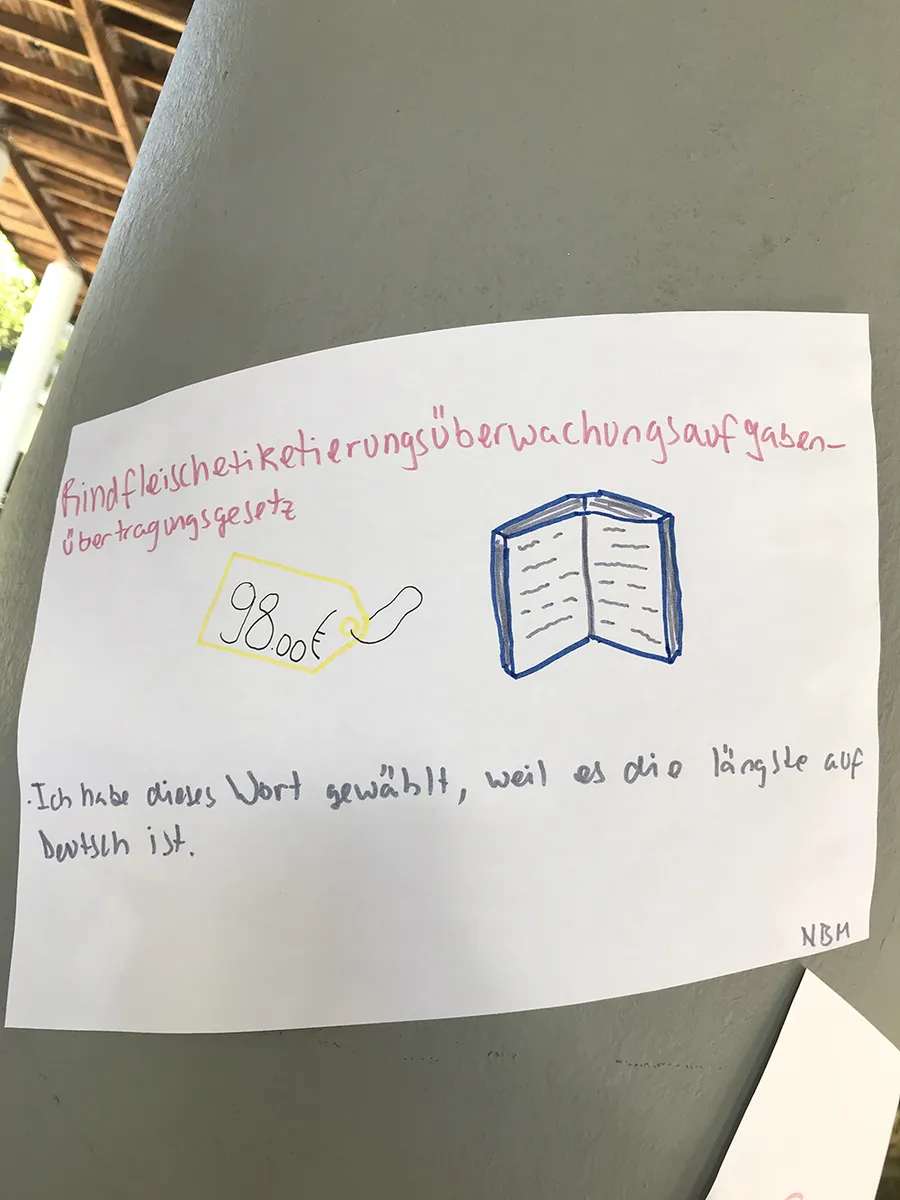 Rindfleischetiketierungsüberwachungsaufgaben-
übertragungsgesetz
98.00€
·Ich habe dieses Wort gewählt, weil es die längste auf
Deutsch ist.
NBM